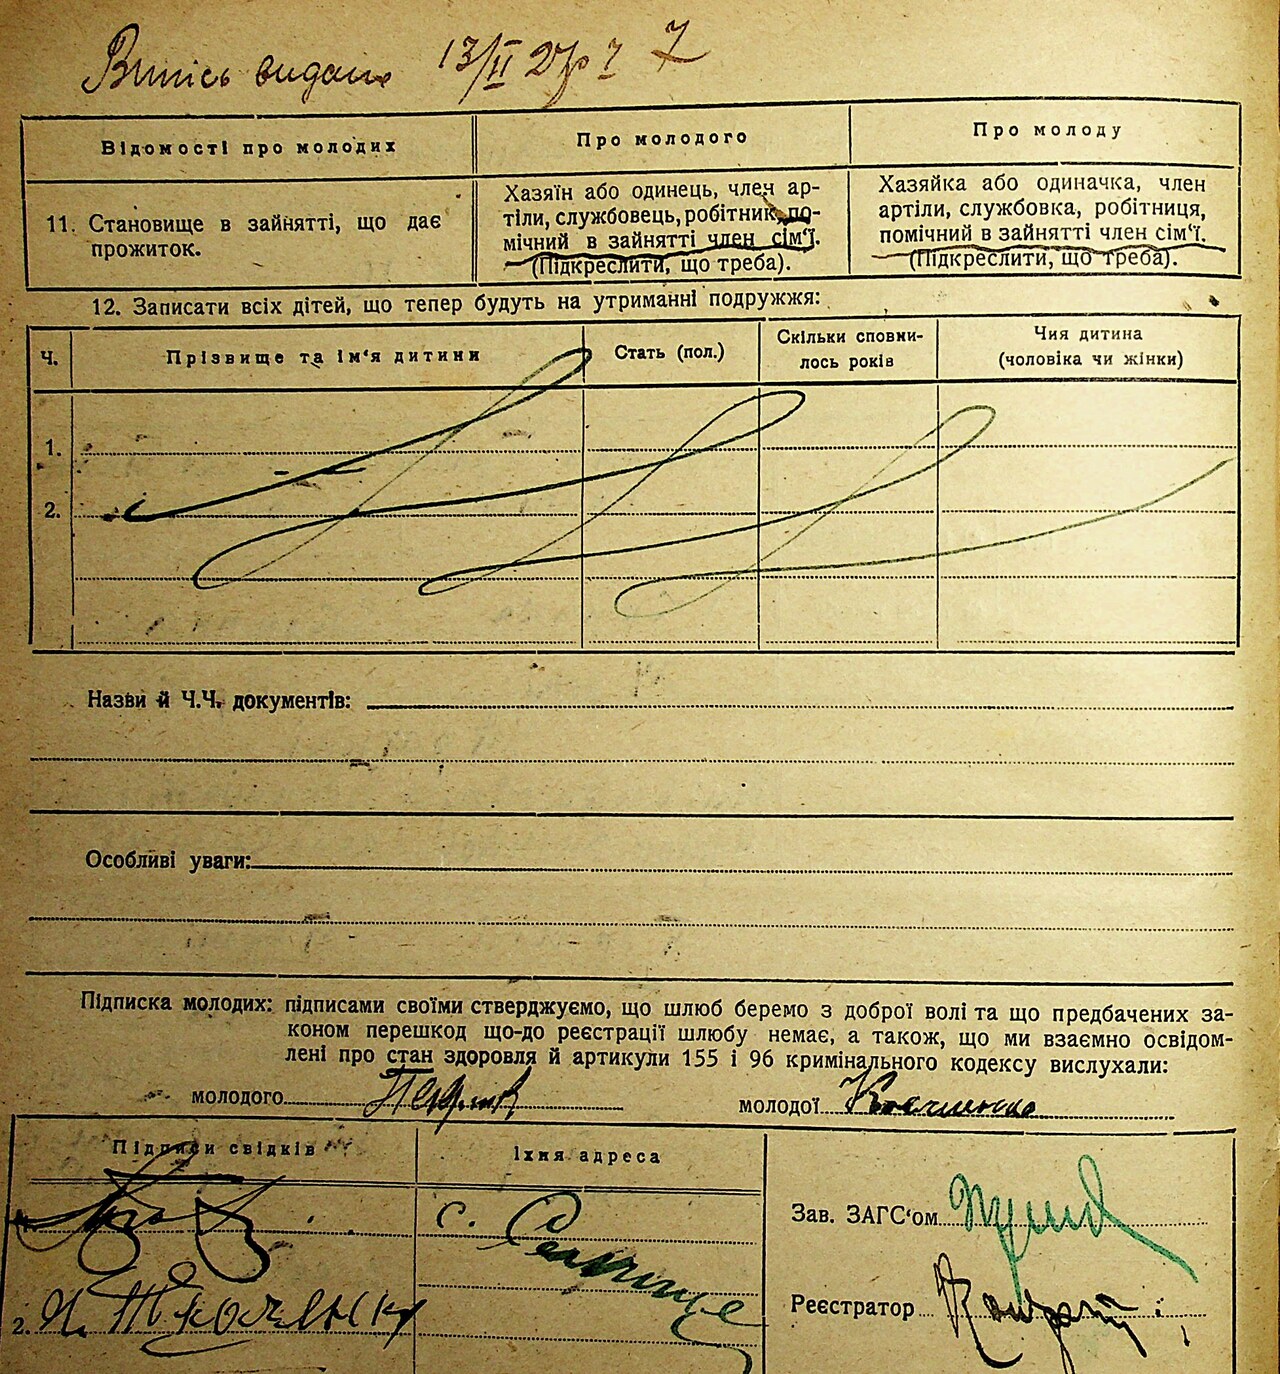 Випись видана 13/II 27 р
Відомості про молодих
Про молодого
Про молоду
11. Становище в зайнятті, що дає
прожиток.
Хазяїн або одинець, член ар-
тіли, службовець, робітник, по-
мічний в зайнятті член сім'ї.
(Підкреслити, що треба).
Хазяйка або одиначка, член
артіли, службовка, робітниця,
помічний в зайнятті член сім'ї.
(Підкреслити, що треба).
12. Записати всіх дітей, що тепер будуть на утриманні подружжя:
Ч.
Прізвище та ім'я дитини
Стать (пол.)
Скільки сповни-
лось років
Чия дитина
(чоловіка чи жінки)
1.
2.
Назви й Ч.Ч. документів:
Особливі уваги:
Підписка молодих: підписами своїми стверджуємо, що шлюб беремо з доброї волі та що предбачених за-
коном перешкод що-до реєстрації шлюбу немає, а також, що ми взаємно освідом-
лені про стан здоровля й артикули 155 і 96 кримінального кодексу вислухали:
молодого
молодої
Підписи свідків
Їхня адреса
с.
Зав. ЗАГС'ом
2.
Реєстратор